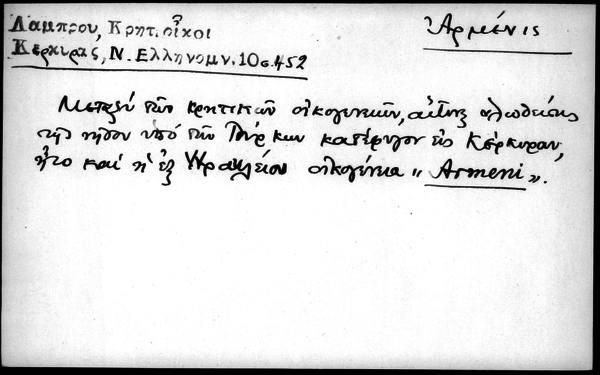 Λάμπρου, Κρητ. οἶκοι
Κερκύρας, Ν. Ελληνομν. 10 σ. 452
Ἀρμένις
Μεταξύ τῶν κρητικῶν οἰκογενειῶν, αἵτινες ἁλωθείσης
τῆς νήσου ὑπό τῶν Τούρκων κατέφυγον εἰς Κέρκυραν,
ἦτο καί ἡ ἐξ Ἡρακλείου οἰκογένεια „ Armeni ”.